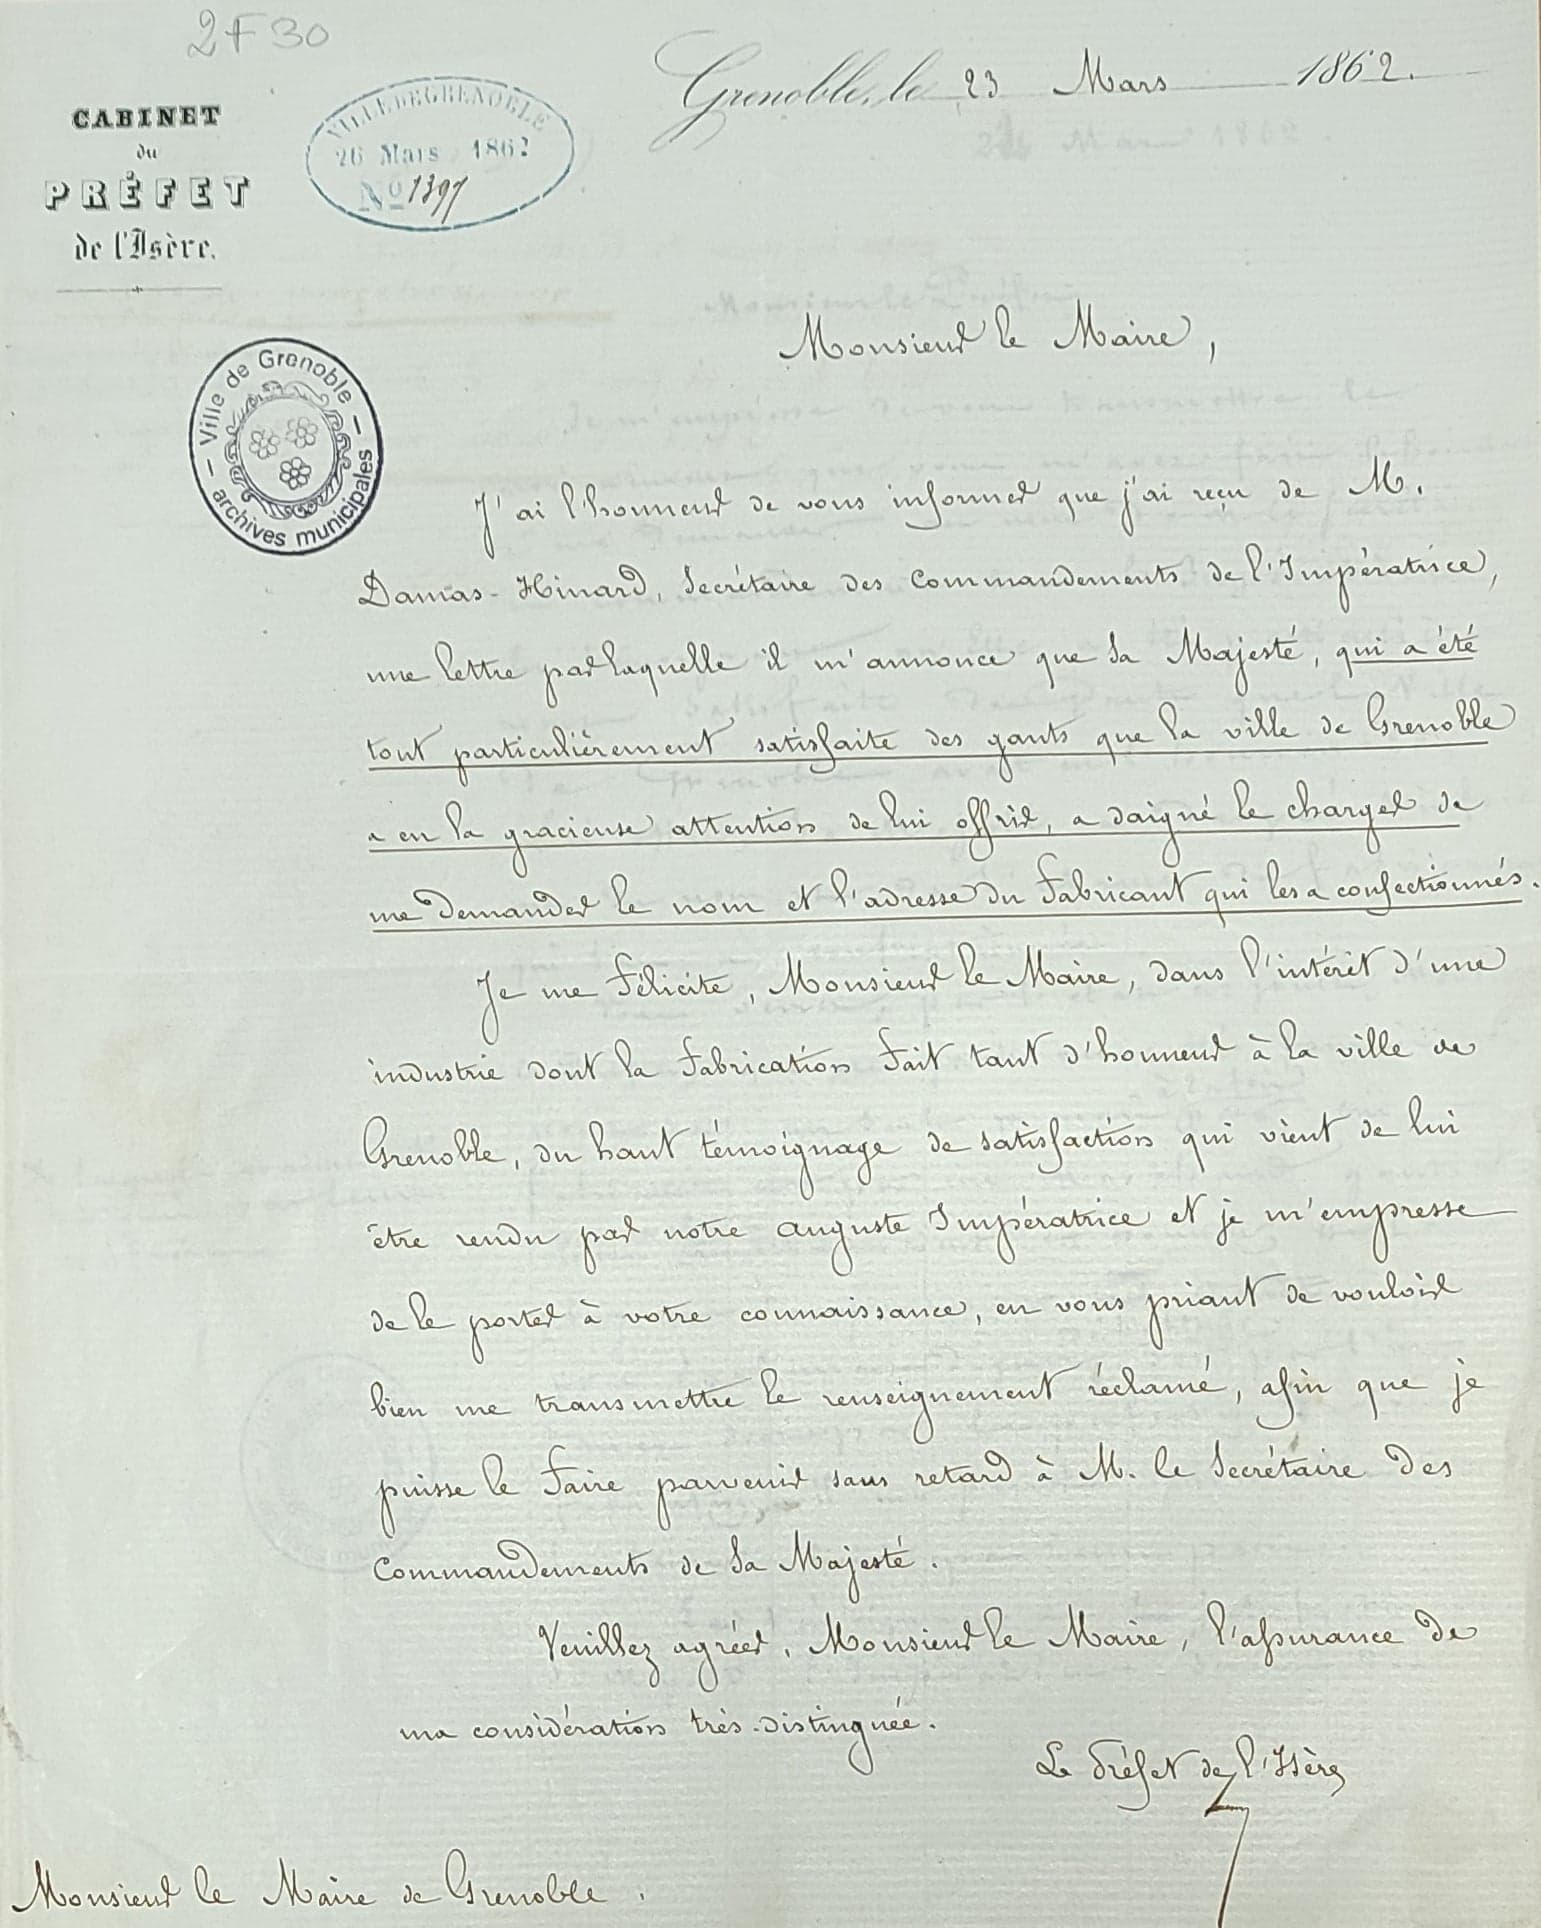 2F30
CABINET
du
PRÉFET
de l'Isère.
VILLE DE GRENOBLE
26 Mars 1862
No 1397
Grenoble, le 23 Mars 1862.
Ville de Grenoble
archives municipales
Monsieur le Maire,
J'ai l'honneur de vous informer que j'ai reçu de M.
Damas-Hinard, Secrétaire des Commandements de l'Impératrice,
une lettre par laquelle il m'annonce que Sa Majesté, qui a été
tout particulièrement satisfaite des gants que la ville de Grenoble
a eu la gracieuse attention de lui offrir, a daigné le charger de
me demander le nom et l'adresse du Fabricant qui les a confectionnés.
Je me Félicite, Monsieur le Maire, dans l'intérêt d'une
industrie dont la Fabrication Fait tant d'honneur à la ville de
Grenoble, du haut témoignage de satisfaction qui vient de lui
être rendu par notre auguste Impératrice et je m'empresse
de le porter à votre connaissance, en vous priant de vouloir
bien me transmettre le renseignement réclamé, afin que je
puisse le Faire parvenir sans retard à M. le Secrétaire des
Commandements de Sa Majesté.
Veuillez agréer, Monsieur le Maire, l'assurance de
ma considération très-distinguée.
Le Préfet de l'Isère
Monsieur le Maire de Grenoble.